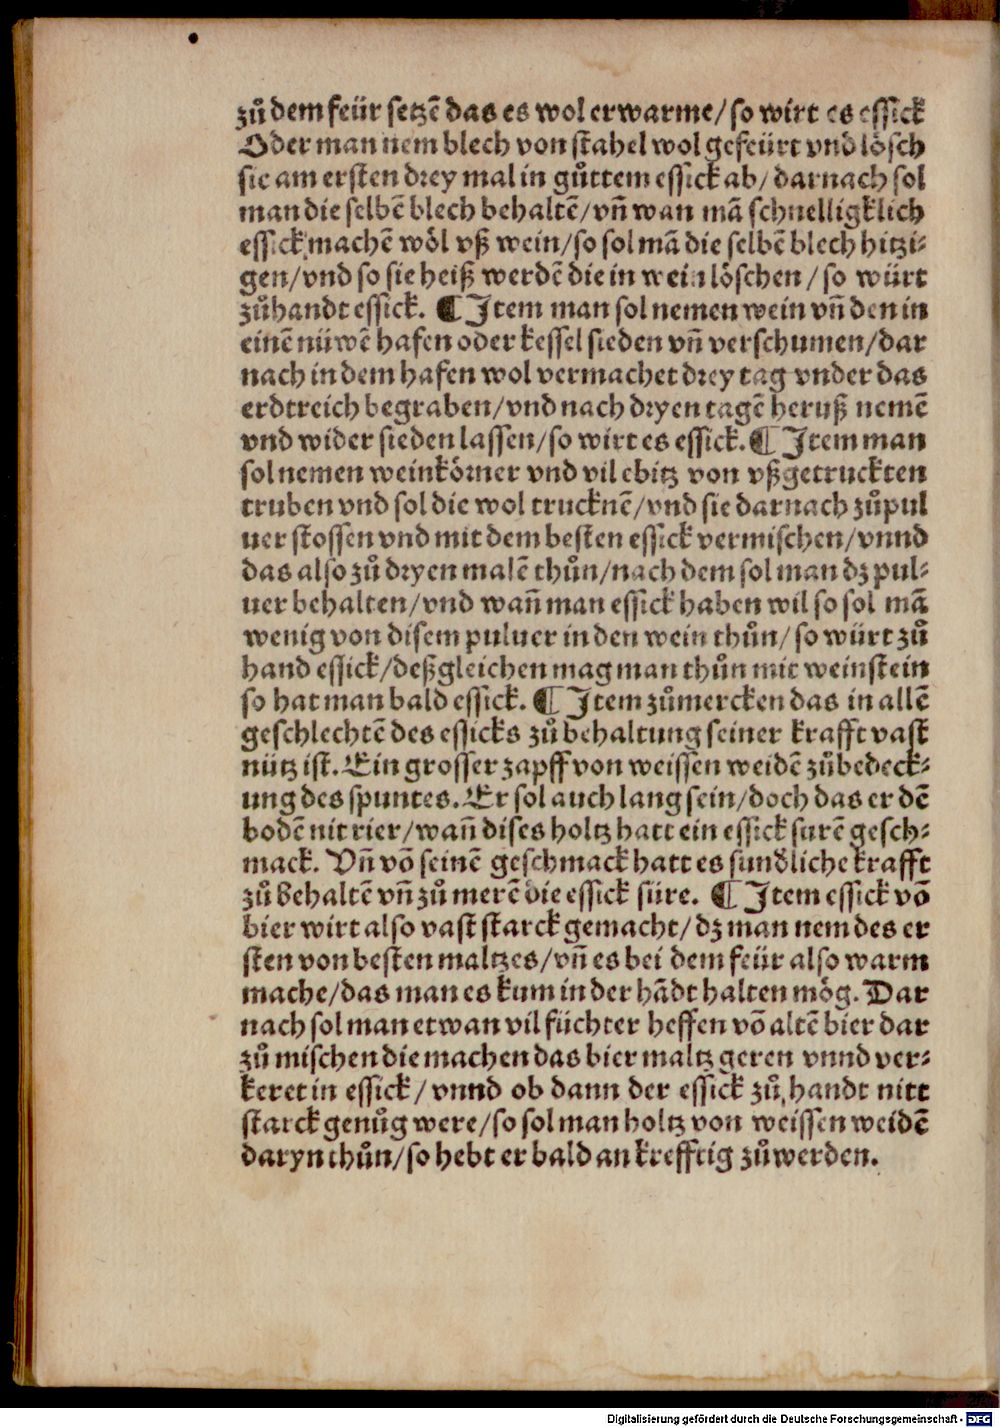 zů dem feür setzē das es wol erwarme/ so wirt es essick
Oder man nem blech von stahel wol gefeürt vnd lösch
sie am ersten drey mal in gůttem essick ab/ darnach sol
man die selbē blech behaltē/ vn̄ wan mā schnelligklich
essick machē wöl vß wein/ so sol mā die selbē blech hitzi-
gen/ vnd so sie heiß werdē die in wein löschen/ so würt
zůhandt essick. ¶ Item man sol nemen wein vn̄ den in
einē nüwē hafen oder kessel sieden vn̄ verschumen/ dar
nach in dem hafen wol vermachet drey tag vnder das
erdtreich begraben/ vnd nach dryen tagē heruß nemē
vnd wider sieden lassen/ so wirt es essick. ¶ Item man
sol nemen weinkörner vnd vil ebitz von vßgetruckten
truben vnd sol die wol trucknē/ vnd sie darnach zůpul
uer stossen vnd mit dem besten essick vermischen/ vnnd
das also zů dryen malē thůn/ nach dem sol man dz pul-
uer behalten/ vnd wan̄ man essick haben wil so sol mā
wenig von disem puluer in den wein thůn/ so würt zů
hand essick/ deßgleichen mag man thůn mit weinstein
so hat man bald essick. ¶ Item zůmercken das in allē
geschlechtē des essicks zů behaltung seiner krafft vast
nütz ist. Ein grosser zapff von weissen weidē zůbedeck-
ung des spuntes. Er sol auch lang sein/ doch das er dē
bodē nit rier/ wan̄ dises holtz hatt ein essick surē gesch-
mack. Vn̄ vō seinē geschmack hatt es sundliche krafft
zů behaltē vn̄ zů merē die essick süre. ¶ Item essick vō
bier wirt also vast starck gemacht/ dz man nem des er
sten von besten maltzes/ vn̄ es bei dem feür also warm
mache/ das man es kum in der hādt halten mög. Dar
nach sol man etwan vil füchter heffen vō altē bier dar
zů mischen die machen das bier maltz geren vnnd ver-
keret in essick/ vnnd ob dann der essick zů handt nitt
starck genůg were/ so sol man holtz von weissen weidē
daryn thůn/ so hebt er bald an krefftig zůwerden.
Digitalisierung gefördert durch die Deutsche Forschungsgemeinschaft - DFG